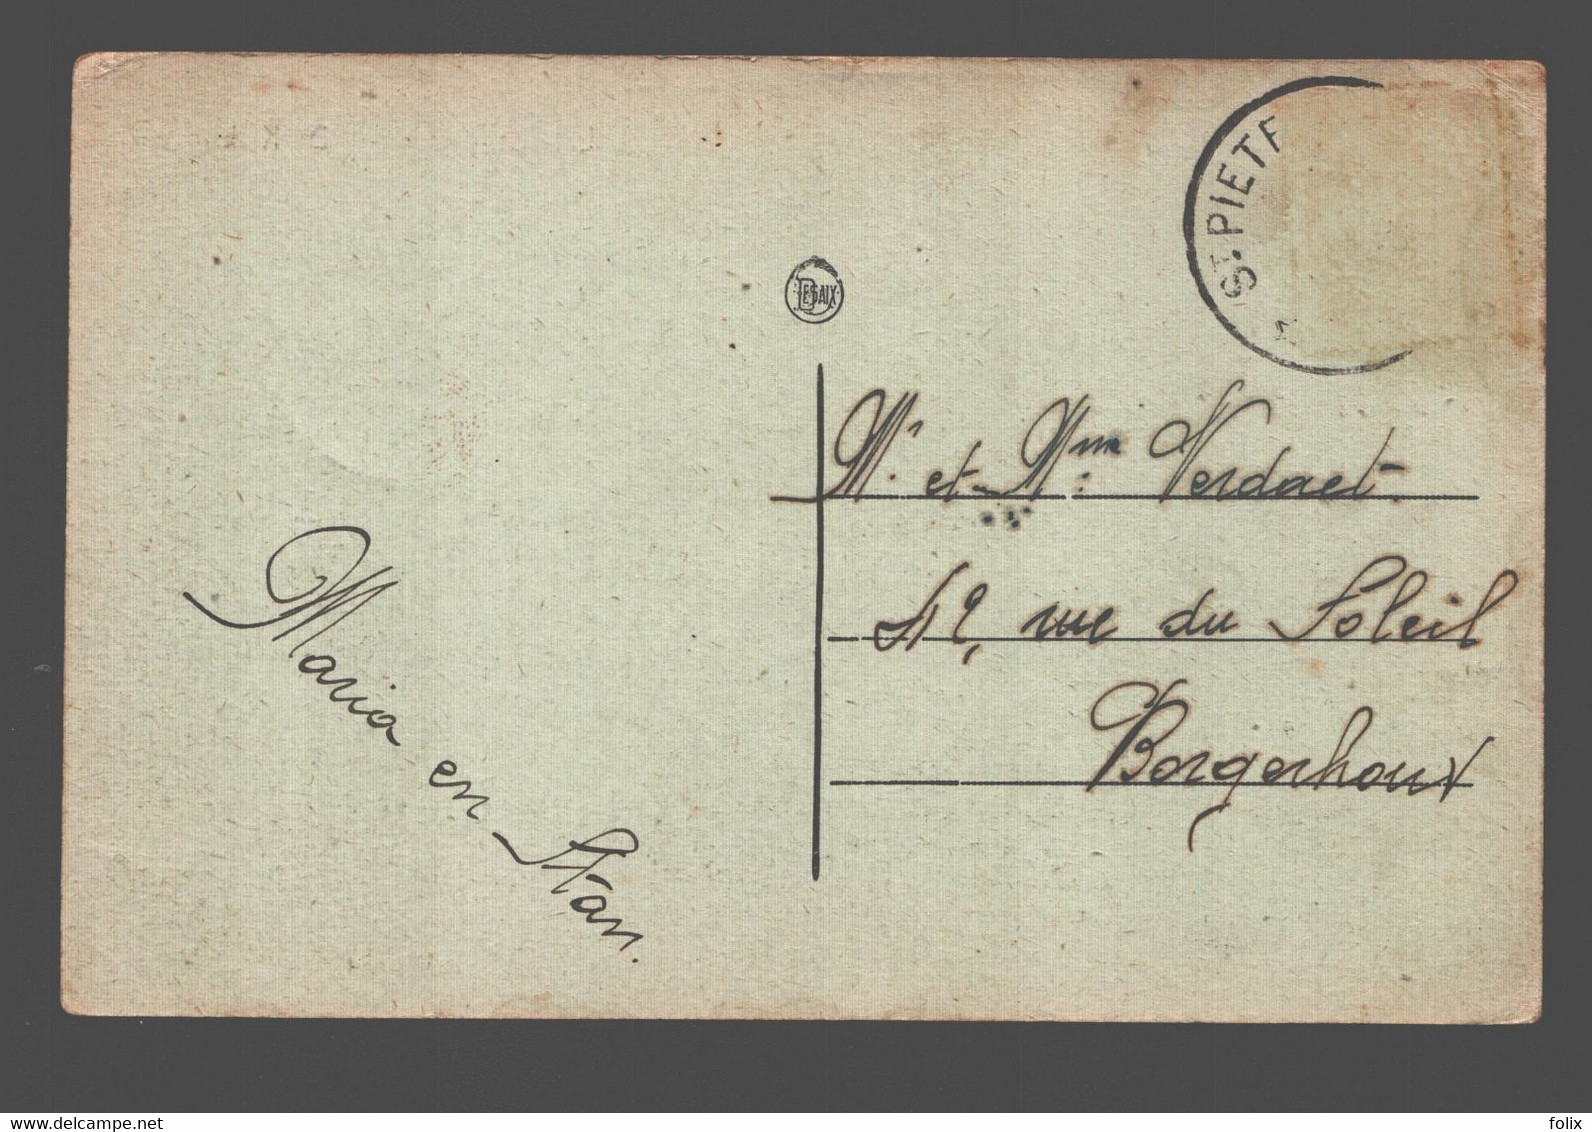 ST-PIETE
DESAIX
Mr et Mme Verdaet
42, rue du Soleil
Borgerhout
Maria en Stan.
delcampe.net
felix